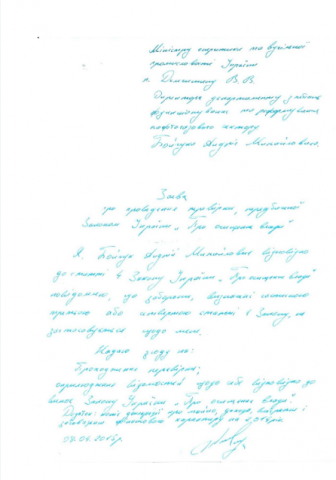 Міністру енергетики та вугільної
промисловості України
п. Демчишину В. В.
Директора департаменту з питань
функціонування та реформування
нафтогазового сектору
Бойчука Андрія Михайловича
Заява
про проведення перевірки, передбаченої
Законом України „Про очищення влади"
Я, Бойчук Андрій Михайлович відповідно
до статті 4 Закону України „Про очищення влади"
повідомляю, що заборони, визначені частиною
третьою або четвертою статті 1 Закону, не
застосовуються щодо мене.
Надаю згоду на:
Проходження перевірки;
оприлюднення відомостей щодо себе відповідно до
вимог Закону України „Про очищення влади".
Додаток: копії декларації про майно, доходи, витрати і
зобов'язання фінансового характеру за